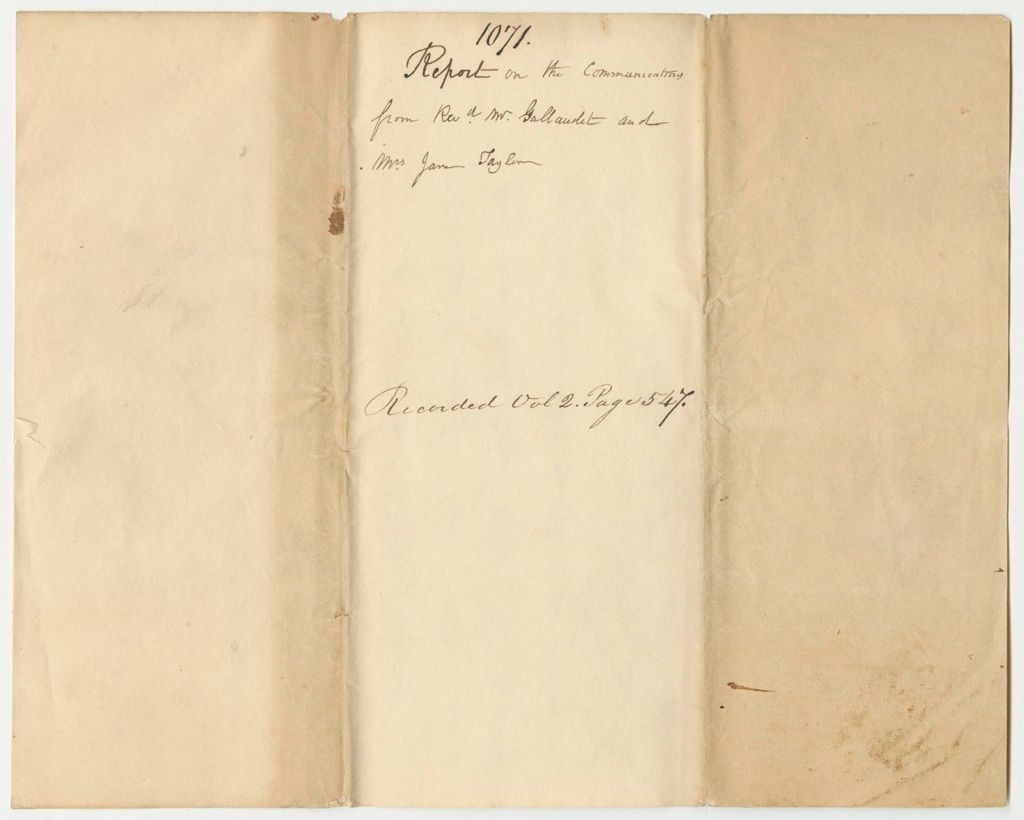 1071.
Report on the Communications
from Revd. Mr. Gallaudet and
Mrs Jane Taylor
Recorded Vol 2. Page 547.